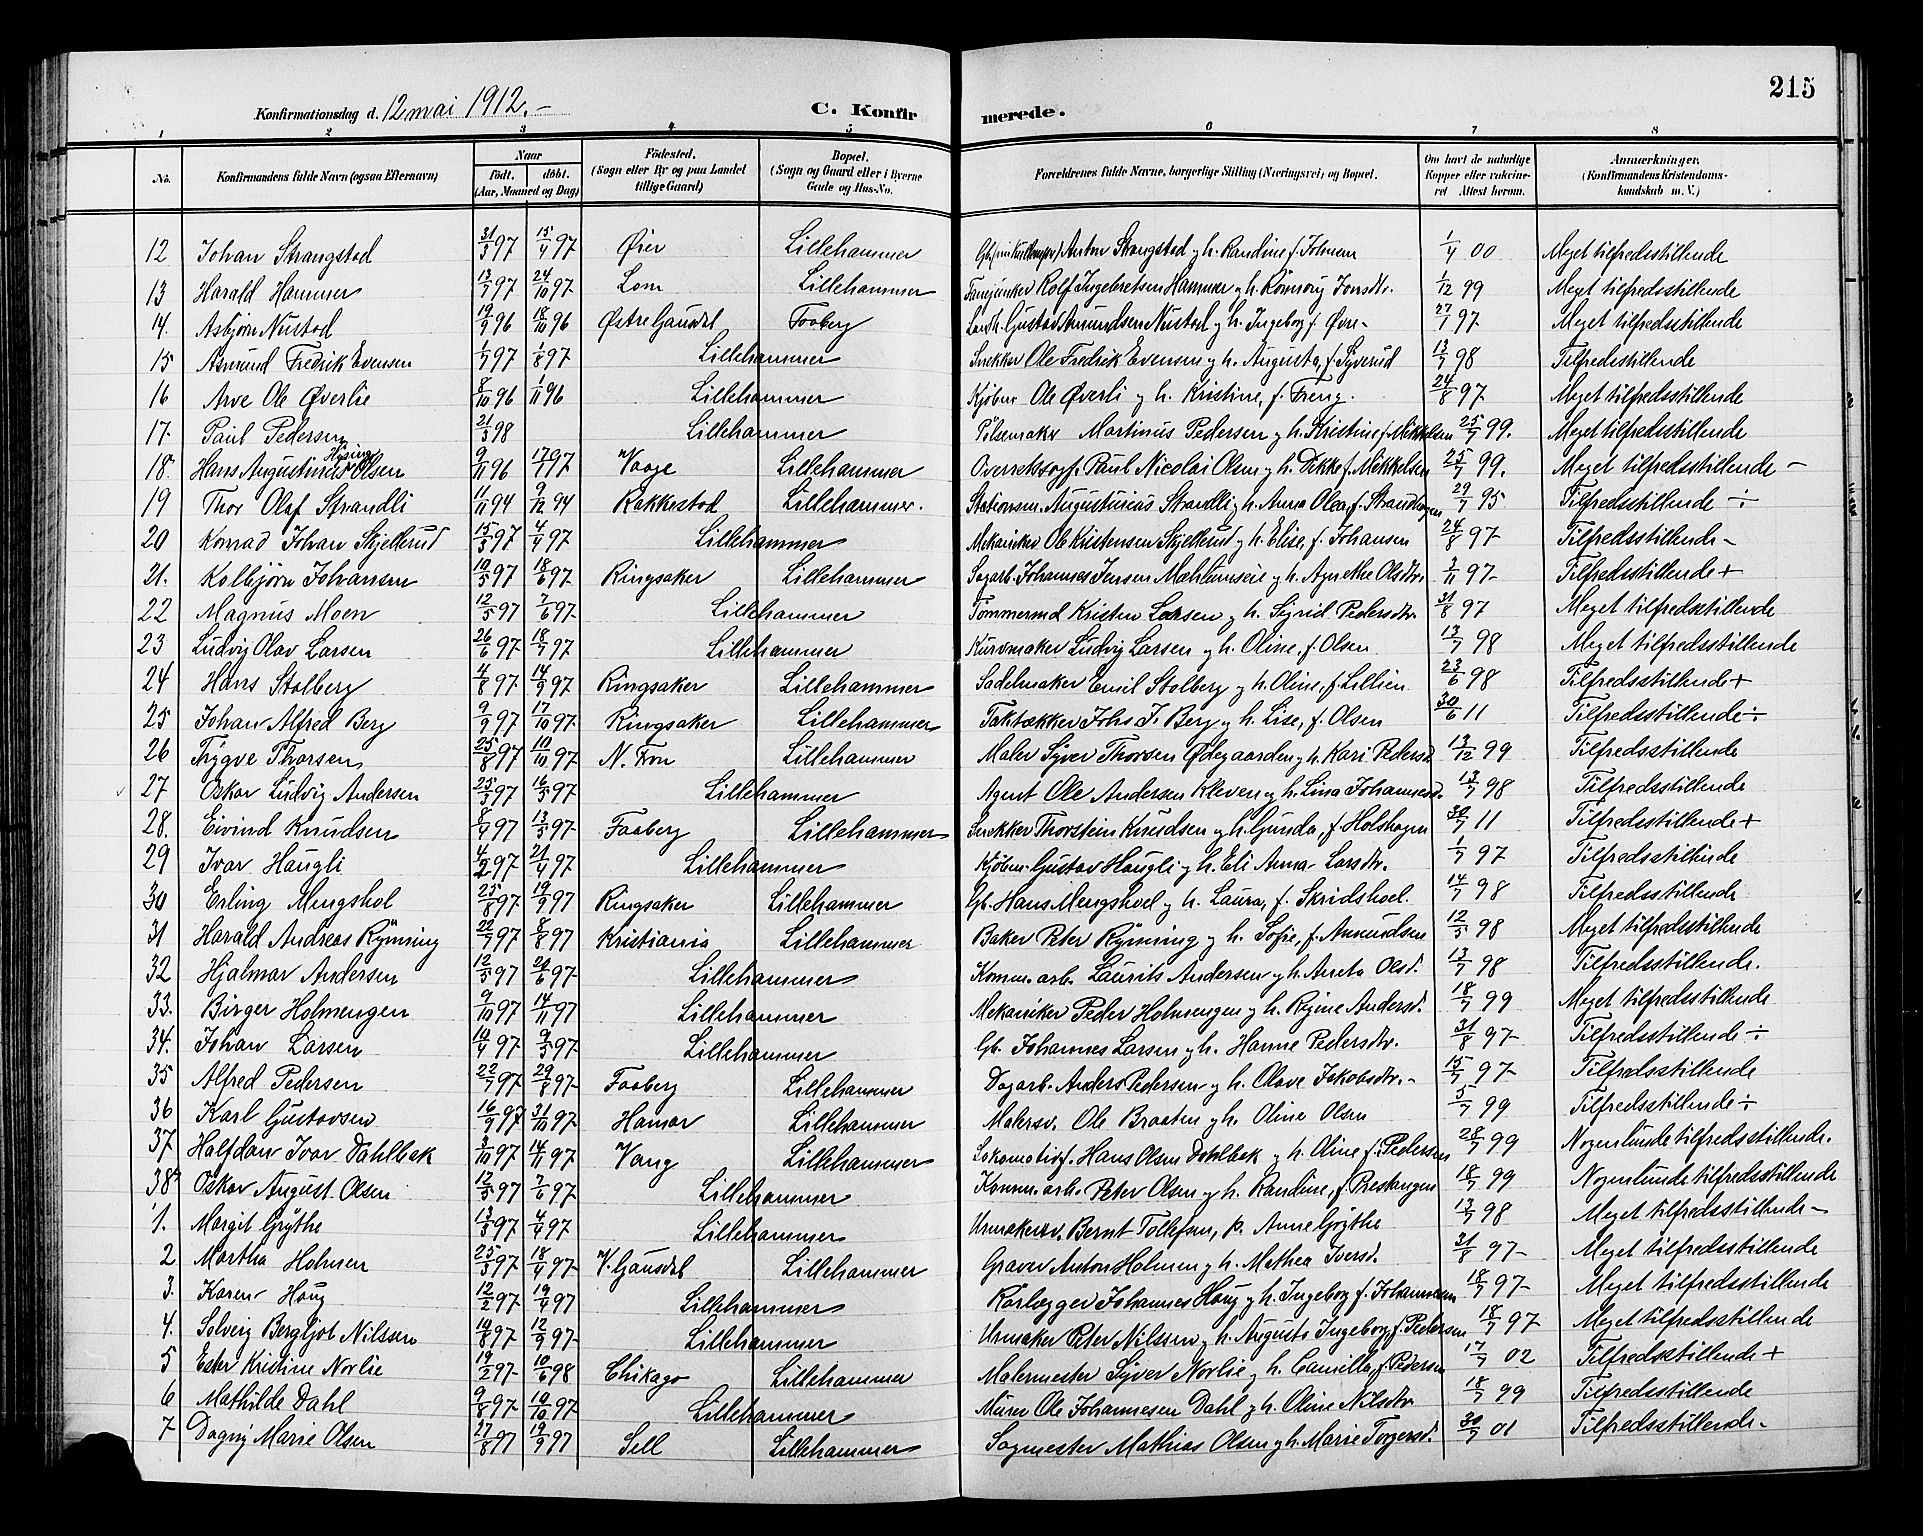 215
Konfirmationsdag d. 12 mai 1912.- C. Konfirmerede.
1 2 3 4 5 6 7 8
No. Konfirmandens fulde Navn (ogsaa Efternavn) Naar födt. döbt. (Aar, Maaned og Dag) Födested. (Sogn eller By og paa Landet tillige Gaard) Bopæl. (Sogn og Gaard eller i Byerne Gade og Hus-No. Forældrenes fulde Navne, borgerlige Stilling (Næringsvei) og Bopæl. Om havt de naturlige Kopper eller vakcineret Attest herom. Anmærkninger. (Konfirmandens Kristendomskundskab m. V.)
12 Johan Strangstad 31/3 97 15/4 97 Øier Lillehammer Anton Strangstad og h. Randine f. Johnsen 1/4 00 Meget tilfredsstillende
13 Harald Hammer 13/7 97 24/10 97 Lom Lillehammer Fanejunker Rolf Ingebretsen Hammer og h. Rönnoug Jonsdtr. 1/12 99 Meget tilfredsstillende
14. Asbjørn Nustad 19/9 96 18/10 96 Østre Gausdal Faaberg Landh. Gustav Amundsen Nustad og h. Ingeborg f. Øvre- 27/1 97 Meget tilfredsstillende
15 Asmund Fredrik Evensen 1/7 97 1/8 97 Lillehammer Snekker Ole Fredrik Evensen og h. Augusta, f. Syverud 13/7 98 Tilfredsstillende
16 Arve Ole Øverlie 8/10 96 1/11 96 Lillehammer Kjøbm. Ole Øverli og h. Kristine, f. Freng. 24/8 97. Meget tilfredsstillende
17. Paul Pedersen 21/3 98 Lillehammer Pölsemaker Martinus Pedersen og h. Kristine f. Mikkelsen 25/7 99. Meget tilfredsstillende
18. Hans Augustinus Hysing Olsen 9/11 96 17/1 97 Vaage Lillehammer Overretssagf. Paul Nicolai Olsen og h. Dikke f. Mikkelsen 25/7 99. Meget tilfredsstillende -
19 Thor Olaf Strandli 11/11 94 9/12 94 Rakkestad Lillehammer. Stationsm. Augustinius Strandli og h. Anna Olea, f. Strandhagen 29/7 95 Tilfredsstillende ÷
20 Konrad Johan Skjellerud 15/3 97 4/4 97 Lillehammer Mekaniker Ole Kristensen Skjellerud og h. Elise, f. Johansen 24/8 97 Tilfredsstillende -
21. Kolbjørn Johansen 10/5 97 18/6 97 Ringsaker Lillehammer Sagarb. Johannes Jensen Mæhlumseie og h. Agnethe Olsdtr. 3/11 97- Tilfredsstillende +
22 Magnus Moen 12/5 97 7/6 97. Lillehammer Tömmermd Kristen Larsen og h. Sigrid Pedersdtr. 31/8 97 Meget tilfredsstillende
23 Ludvig Olav Larsen 26/6 97 18/7 97 Lillehammer Kurvmaker Ludvig Larsen og h. Oline, f. Olsen 13/7 98 Meget tilfredsstillende
24 Hans Stolberg 4/8 97 14/9 97 Ringsaker Lillehammer Sadelmaker Emil Stolberg og h. Oline, f. Lillien 23/6 98 Tilfredsstillende +
25 Johan Alfred Berg 9/9 97 17/10 97 Ringsaker Lillehammer Taktækker Johs J. Berg og h. Lise, f. Olsen 30/6 11 Tilfredsstillende ÷
26 Trygve Thorsen 25/8 97 10/10 97. N. Fron Lillehammer Maler Syver Thorsen Ødegaarden og h. Kari Pedersd. 13/12 99 Tilfredsstillende
27 Oskar Ludvig Andersen 25/3 97 16/5 97 Lillehammer Agent Ole Andersen Kleven og h. Lina Johannesd. 13/7 98 Tilfredsstillende
28. Eivind Knudsen 8/4 97 13/5 97 Faaberg Lillehammer Snekker Thorstein Knudsen og h. Gunda, f. Holshagen 30/7 11 Tilfredsstillende +
29 Ivar Haugli 4/2 97 21/4 97 Lillehammer Kjöbm. Gustav Haugli og h. Eli Anna Larsdtr. 1/7 97 Tilfredsstillende
30 Erling Mengshol 25/8 97 19/9 97 Ringsaker Lillehammer Gb. Hans Mengshoel og h. Laura, f. Skridshoel. 14/7 98 Tilfredsstillende
31 Harald Andreas Rynning 22/7 97 8/8 97 Kristiania Lillehammer Baker Peter Rynning og h. Sofie, f. Amundsen 12/5 98 Meget tilfredsstillende
32 Hjalmar Andersen 12/5 97 20/6 97 Lillehammer Komm. arb. Laurits Andersen og h. Aneta Olsd. 13/7 98 Tilfredsstillende.
33. Birger Holmengen 9/10 97 14/11 97 Lillehammer Mekaniker Peder Holmengen og h. Regine Andersd. 18/7 99 Meget tilfredsstillende
34. Johan Larsen 10/4 97 9/5 97. Lillehammer Gb. Johannes Larsen og h. Hanne Pedersdtr. 31/8 97- Tilfredsstillende ÷
35 Alfred Pedersen 22/7 97 29/8 97- Faaberg Lillehammer Dagarb. Anders Pedersen og h. Olave Jakobsdtr. - 15/7 97- Tilfredsstillende
36 Karl Gustavsen 16/9 97 31/10 97 Hamar Lillehammer Malersv. Ole Braaten og h. Oline Olsen 5/7 99 Tilfredsstillende ÷
37 Halfdan Ivar Dahlbak 3/10 97 14/11 97 Vang Lillehammer Lokomotivf. Hans Olsen Dahlbak og h. Oline f. Pedersen 28/7 99 Nogenlunde tilfredsstillende.
38 Oskar August Olsen 12/5 97 7/6 97. Lillehammer Komm. arb. Peter Olsen og h. Randine, f. Prestangen 18/7 99 Nogenlunde tilfredsstillende
1. Margit Grythe 13/3 97 4/4 97 Lillehammer Urmakersv. Bernt Tollefsen, p. Anne Grythe 13/7 98 Meget tilfredsstillende -
2 Martha Holmen 25/3 97 18/4 97. V. Gausdal Lillehammer Graver Anton Holmen og h. Mathea Iversd. 31/8 97- Meget tilfredsstillende
3. Karen Haug 12/2 97 19/4 97 Lillehammer Rörlægger Johannes Haug og h. Ingeborg f. Johannesen 18/7 97- Meget tilfredsstillende
4. Solveig Bergljot Nilssen 10/8 97- 12/9 97- Lillehammer Urmaker Peter Nilssen og h. Augusta Ingeborg, f. Pedersen 18/7 97 Meget tilfredsstillende
5 Ester Kristine Norlie 19/2 97- 10/6 98 Chikago Lillehammer Malermester Syver Norlie og h. Camilla, f. Pedersen 17/7 02 Tilfredsstillende +
6 Mathilde Dahl 9/8 97 10/10 97. Lillehammer Murer Ole Johannesen Dahl og h. Oline Nilsdtr 18/7 99 Tilfredsstillende
7 Dagny Marie Olsen 27/8 97 19/9 97 Sell Lillehammer Sagmester Mathias Olsen og h. Marie Torgersd. 30/7 01 Tilfredsstillende -